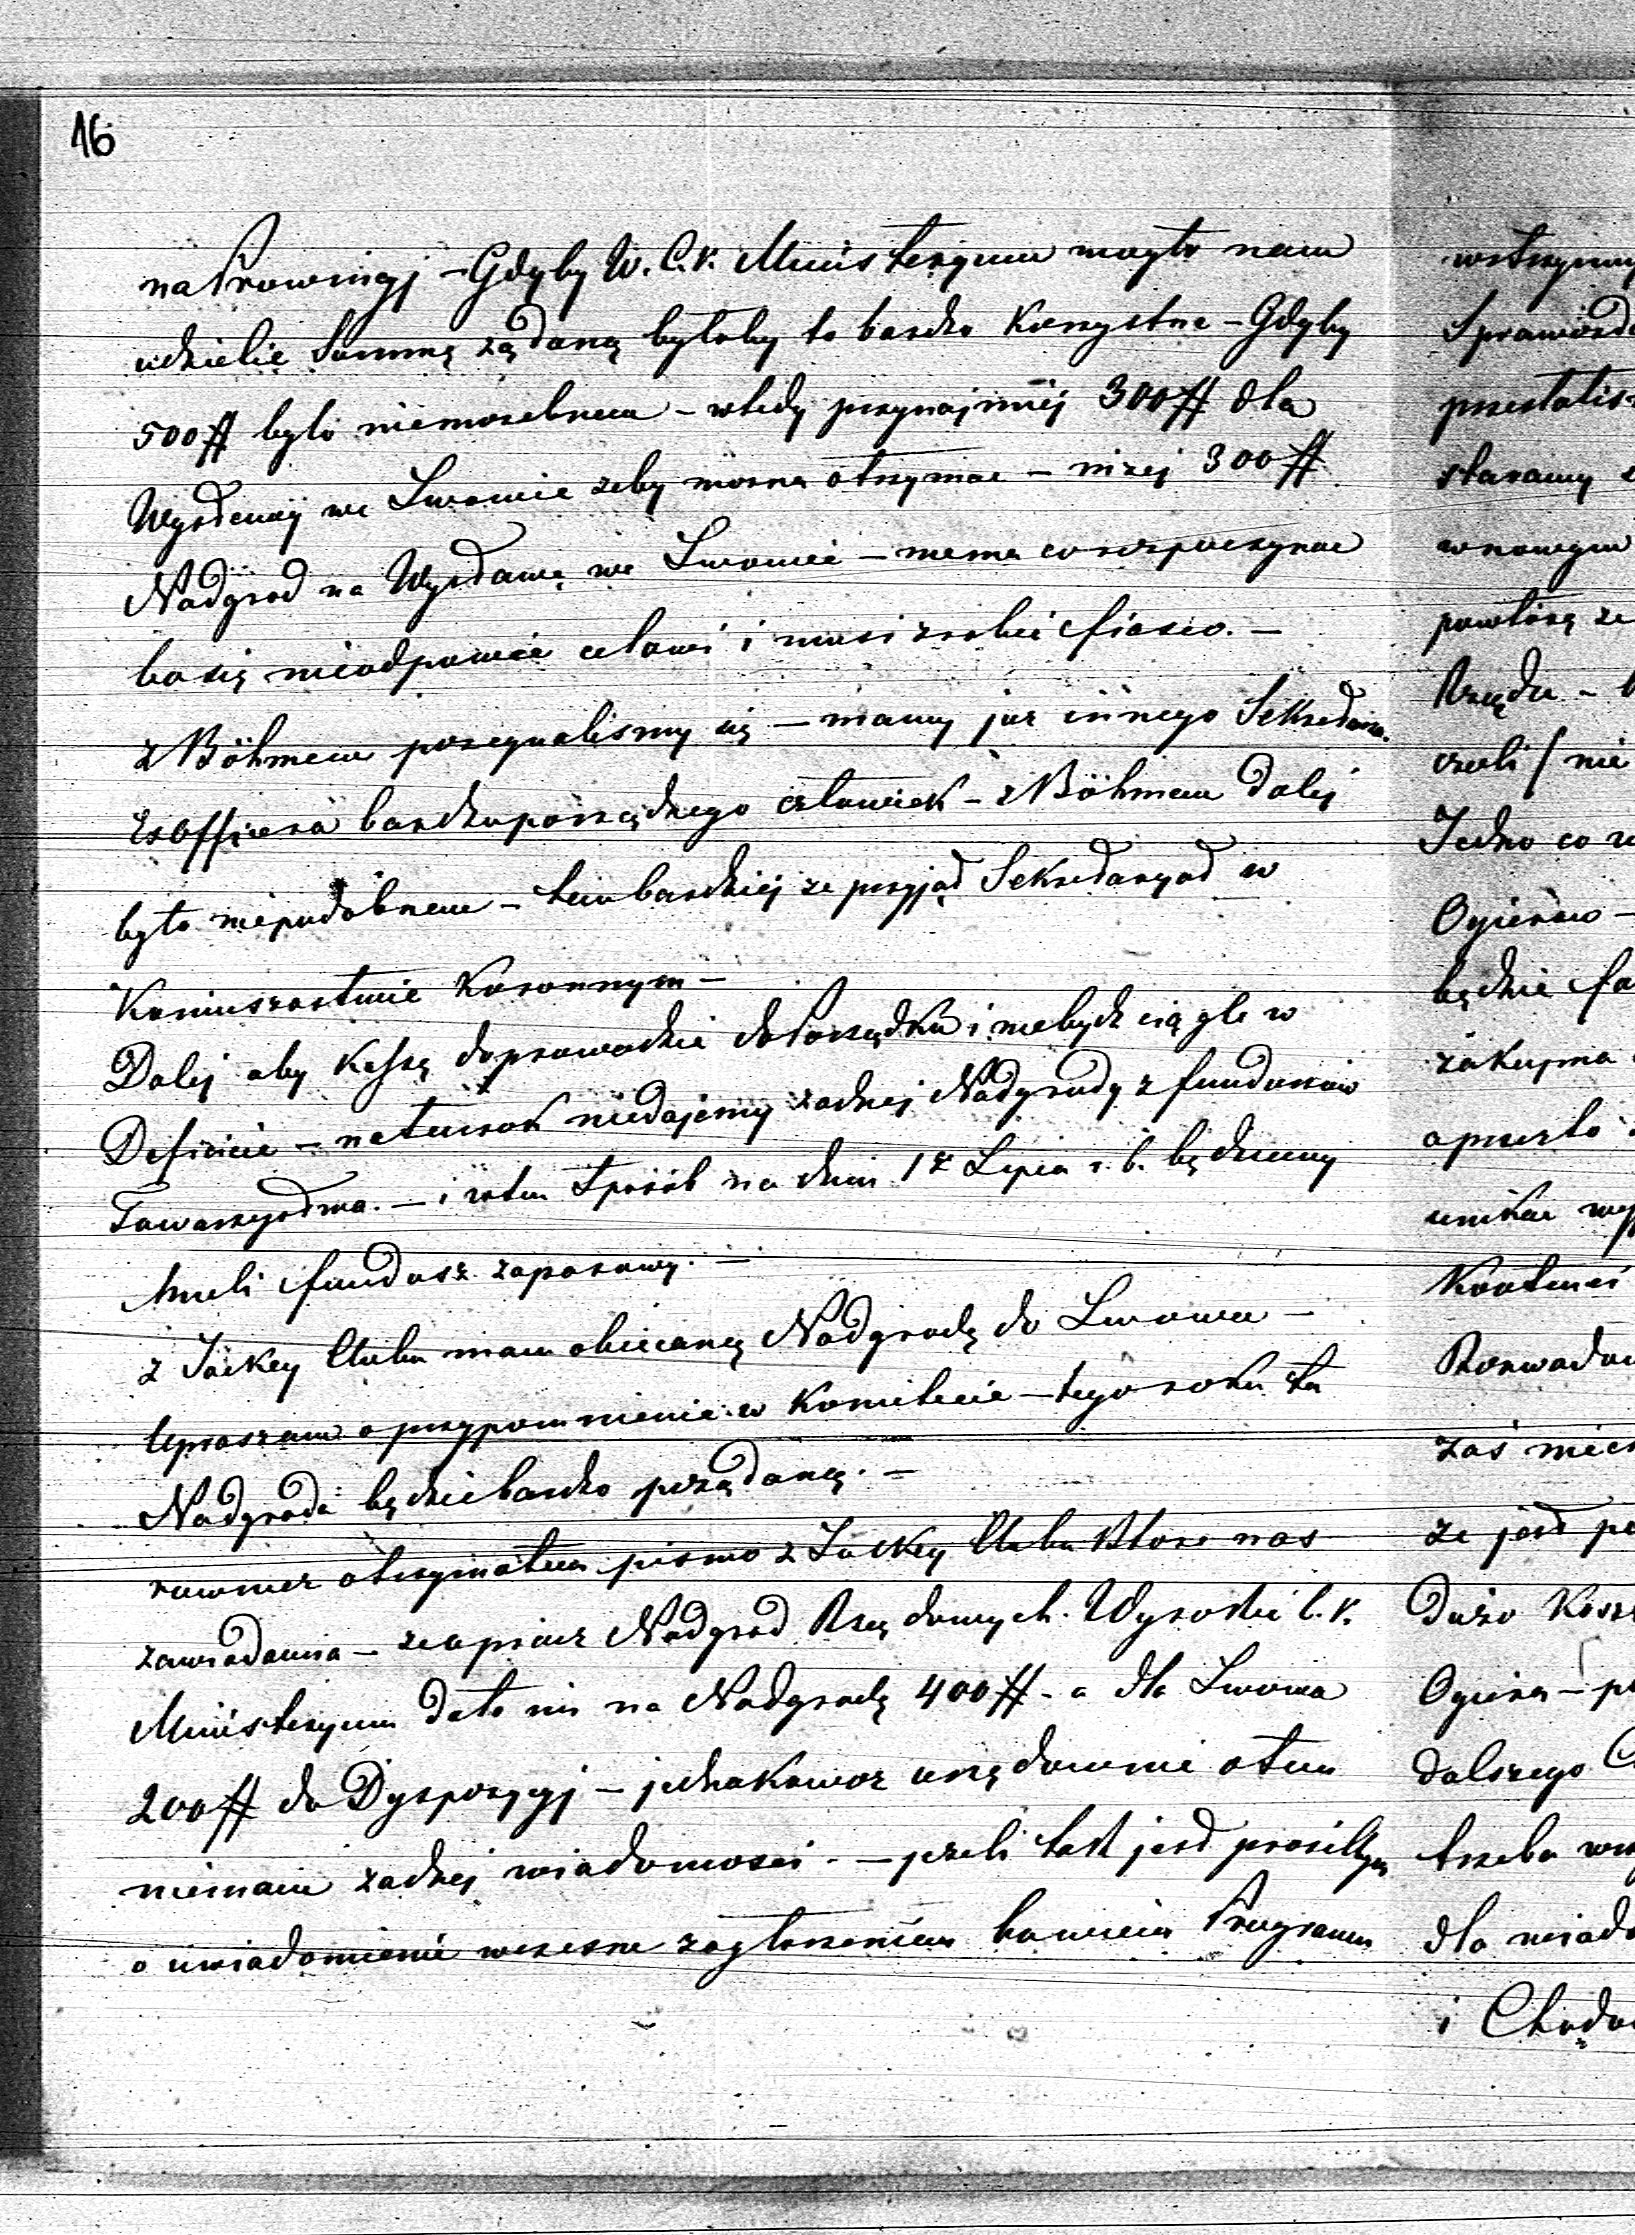 16
na Prowincyj – Gdyby W. C. K. Ministeryum mogło nam
udzielić Summę żądaną byłoby to bardzo korzystne – Gdyby
500 # było niemożebnem – wtedy przynajmniej 300 # dla
Wystawy we Lwowie żeby można otrzymac – niżej 300 #
Nadgrod na Wystawę we Lwowie – niema co rozpoczynac
bo się nieodpowie celowi i musi zrobić fiasco. –
z Böhmem pożegnalismy się – mamy juz innego Sekretarza
Exofficera bardzo porządnego człowiek – z Böhmem dalej
było niepodobnem – tem bardziej ze przyjął Sekretaryat w
Koniuszostwie Koronnym –
Dalej aby Kassę doprowadzić do Porządku i niebydz ciągle w
Deficicie – na ten rok niedajemy zadnej Nadgrody z funduszów
Towarzystwa. – i w ten sposób na dzień 1go Lipca r. b. będziemy
mieli fundusz zapasowy. –
z Jockey Clubu mam obiecaną Nadgrodę do Lwowa –
Upraszam o przypomnienie w Komitecie – tego roku ta
Nadgroda będzie bardzo pożądaną. –
rownież otrzymałem pismo z Jockey Clubu ktore nas
zawiadamia – ze oprocz Nadgrod Rządowych. Wysokie C. K.
Ministeryum dało im na Nadgrodę 400 # – a dla Lwowa
200 # do Dyspozycyj – jednakowoz urzędownie o tem
niemam zadnej wiadomosci. – jezeli tak jest prosiłbym
o uwiadomienie wczesne z ogłoszeniem bowiem Programu
wstrzymuj
Sprawozda
przestalis
staramy
w nowym
powtorzą ze
Rządu –
czeli / nie
Jedno co
Ogierow –
będzie
zakupna
oprusto
unikac
Rozwadow
zaś
ze jest
Dużo Kosz
Ogiera –
dalszego
trzeba
dla wiado
i Chodo